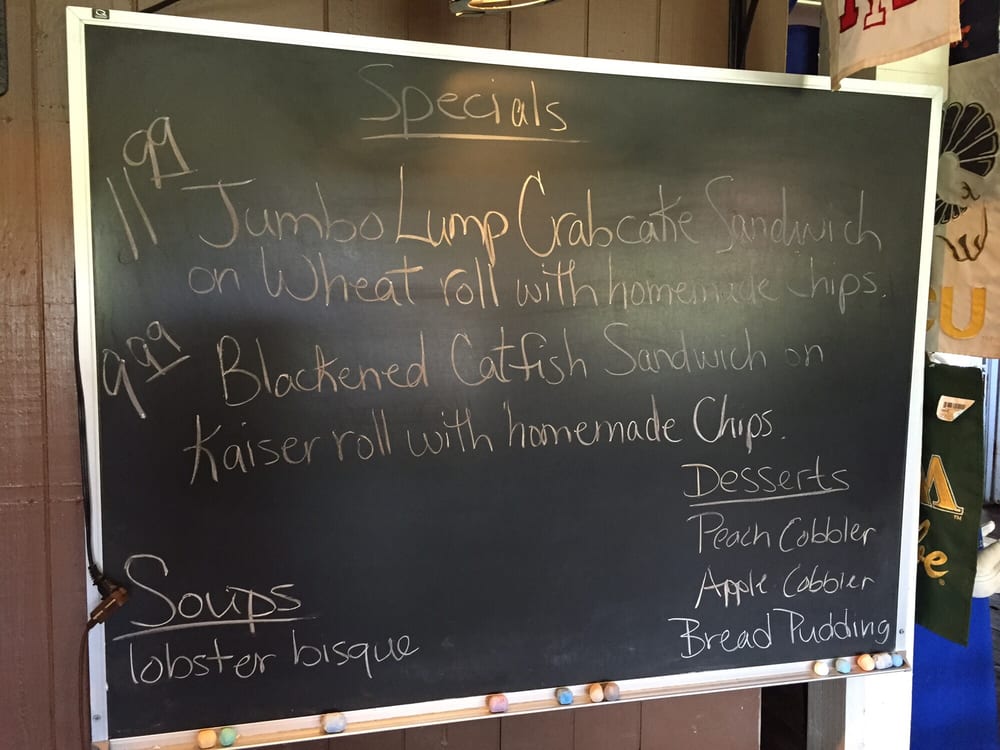 Specials
11 99
Jumbo Lump Crabcake Sandwich
on Wheat roll with homemade chips.
9 99
Blackened Catfish Sandwich on
Kaiser roll with homemade Chips.
Desserts
Peach Cobbler
Apple Cobbler
Bread Pudding
Soups
lobster bisque
CU
TM